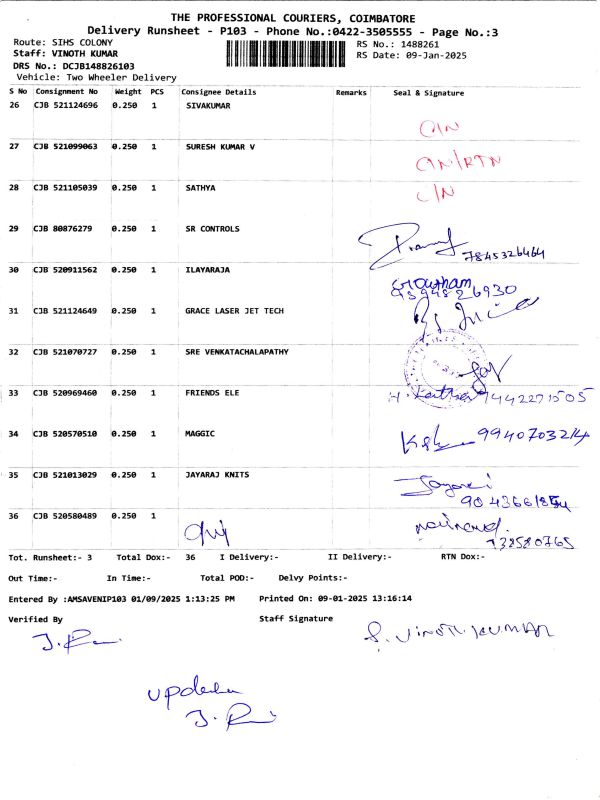 THE PROFESSIONAL COURIERS, COIMBATORE
Delivery Runsheet - P103 - Phone No.:0422-3505555 - Page No.:3
Route: SIHS COLONY
Staff: VINOTH KUMAR
DRS No.: DCJB148826103
Vehicle: Two Wheeler Delivery
RS No.: 1488261
RS Date: 09-Jan-2025
S No Consignment No Weight PCS Consignee Details Remarks Seal & Signature
26 CJB 521124696 0.250 1 SIVAKUMAR
27 CJB 521099063 0.250 1 SURESH KUMAR V
28 CJB 521105039 0.250 1 SATHYA
C/N
29 CJB 80876279 0.250 1 SR CONTROLS
7845326464
30 CJB 520911562 0.250 1 ILAYARAJA
Gowtham
31 CJB 521124649 0.250 1 GRACE LASER JET TECH
32 CJB 521070727 0.250 1 SRE VENKATACHALAPATHY
33 CJB 520969460 0.250 1 FRIENDS ELE
34 CJB 520570510 0.250 1 MAGGIC
9940703214
35 CJB 521013029 0.250 1 JAYARAJ KNITS
36 CJB 520580489 0.250 1
Tot. Runsheet:- 3 Total Dox:- 36 I Delivery:- II Delivery:- RTN Dox:-
Out Time:- In Time:- Total POD:- Delvy Points:-
Entered By :AMSAVENIP103 01/09/2025 1:13:25 PM Printed On: 09-01-2025 13:16:14
Verified By Staff Signature
S. VINOTH KUMAR